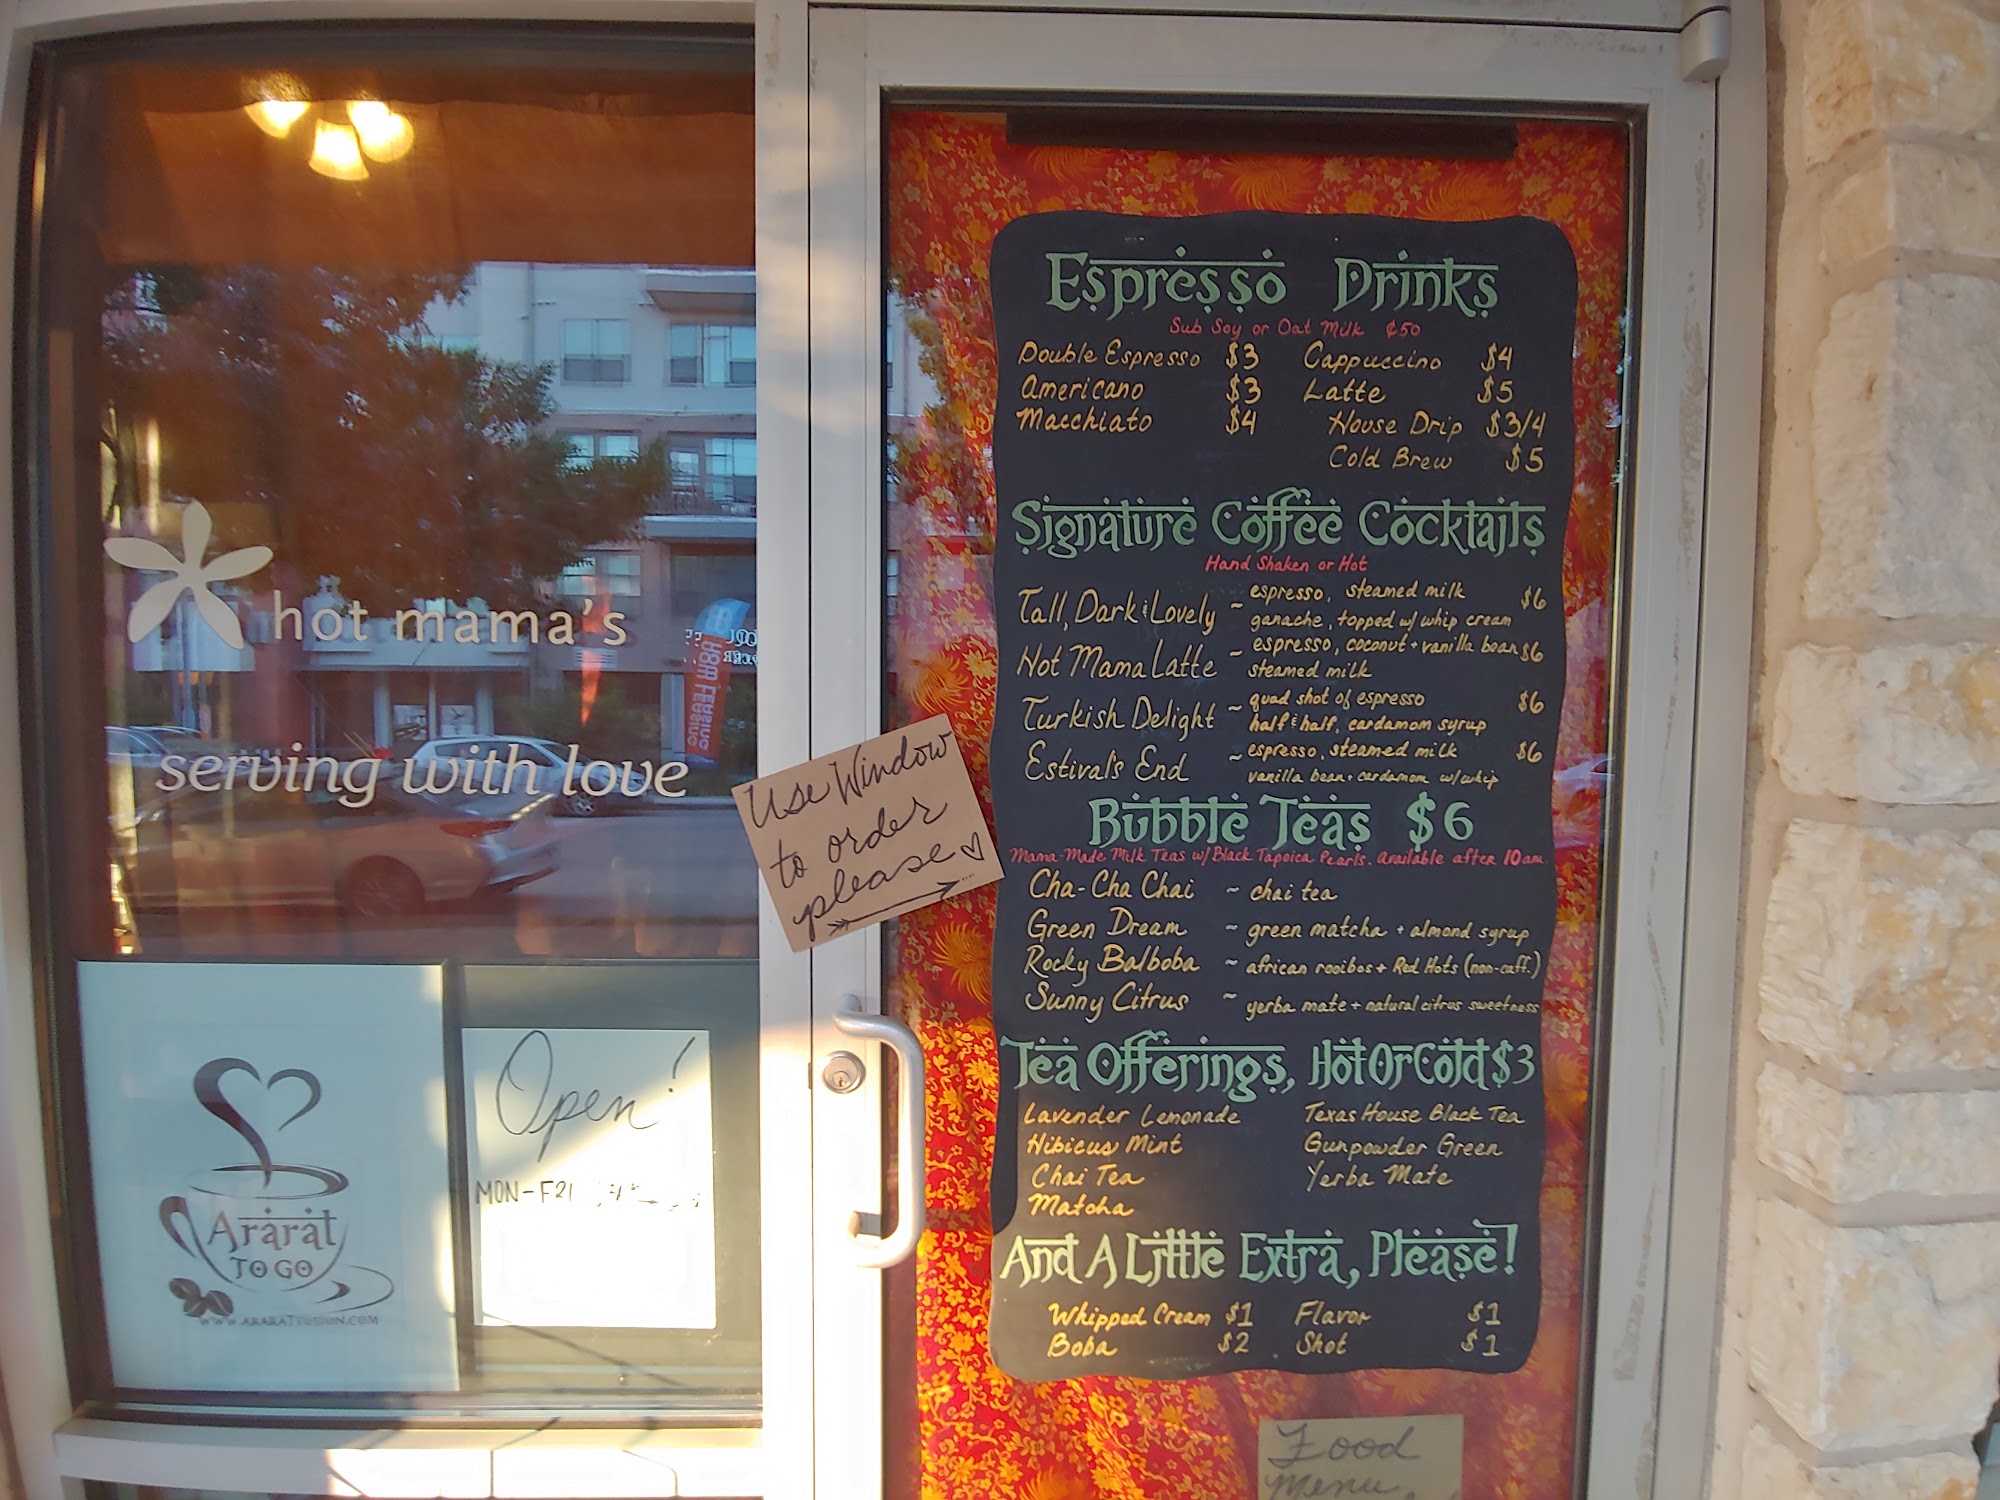 hot mama's
serving with love
Use Window
to order
please
Open!
MON-FRI
Ararat
TO GO
WWW.ARARATFUSION.COM
Espresso Drinks
Sub Soy or Oat Milk ¢50
Double Espresso $3 Cappuccino $4
Americano $3 Latte $5
Macchiato $4 House Drip $3/4
Cold Brew $5
Signature Coffee Cocktails
Hand Shaken or Hot
Tall, Dark & Lovely ~ espresso, steamed milk $6
ganache, topped w/ whip cream
Hot Mama Latte ~ espresso, coconut + vanilla bean $6
steamed milk
Turkish Delight ~ quad shot of espresso $6
half & half, cardamom syrup
Estival's End ~ espresso, steamed milk $6
vanilla bean + cardamom w/whip
Bubble Teas $6
Mama-Made Milk Teas w/ Black Tapoica Pearls. Available after 10am.
Cha-Cha Chai ~ chai tea
Green Dream ~ green matcha + almond syrup
Rocky Balboba ~ african rooibos + Red Hots (non-caff.)
Sunny Citrus ~ yerba mate + natural citrus sweetness
Tea Offerings, Hot Or Cold $3
Lavender Lemonade Texas House Black Tea
Hibicus Mint Gunpowder Green
Chai Tea Yerba Mate
Matcha
And A Little Extra, Please!
Whipped Cream $1 Flavor $1
Boba $2 Shot $1
Food
Menu